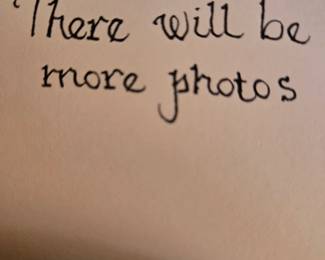 There will be
more photos